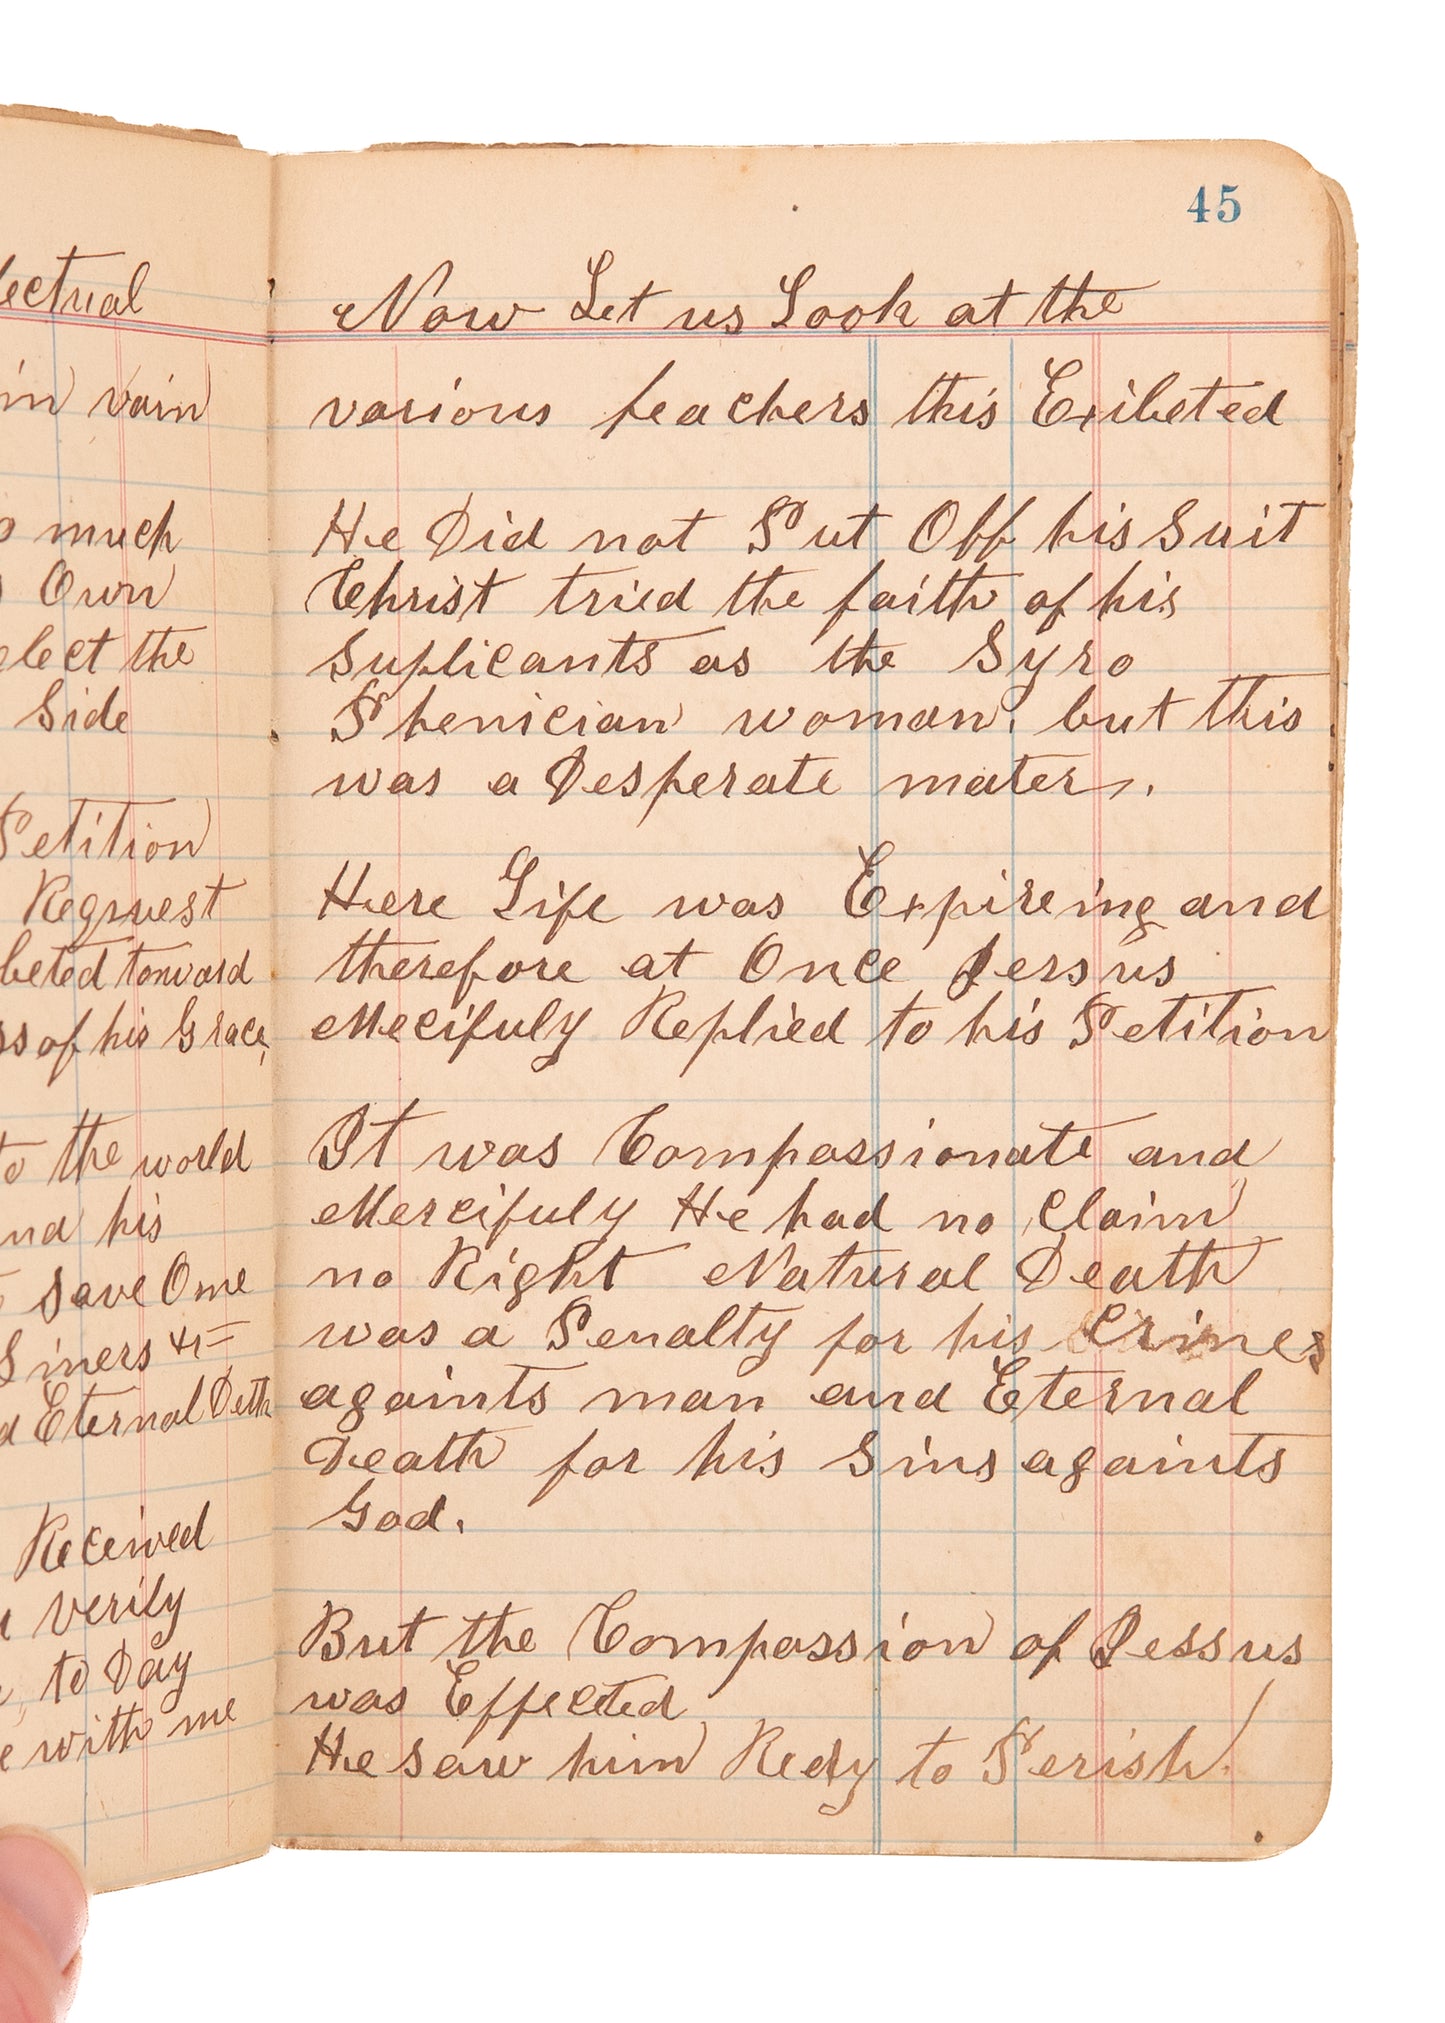 lectual
in vain
much
Own
the
Side
Petition
Request
beted toward
ss of his Grace,
to the world
and his
save One
Siners &c=
d Eternal Deth
Received
verily
to Day
with me
45
Now Let us Look at the
various feachers this Exibeted
He Did not Put Off his Suit
Christ tried the faith of his
Suplicants as the Syro
Phenician woman. but this
was a Desperate mater.
Here Life was Expireing and
therefore at Once Jessus
Mecifuly Replied to his Petition
It was Compassionate and
Mercifuly He had no Claim
no Right Natural Death
was a Penalty for his Crimes
againts man and Eternal
Death for his Sins againts
God.
But the Compassion of Jessus
was Effected
He saw him Redy to Perish!